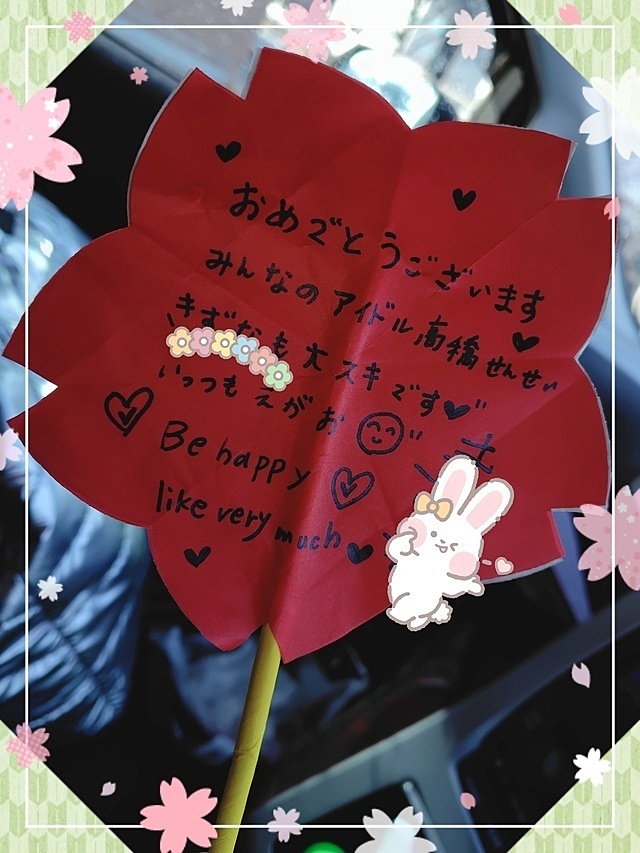 おめでとうございます
みんなのアイドル高橋せんせい
も大スキです
いっつもえがお
Be happy
like very much